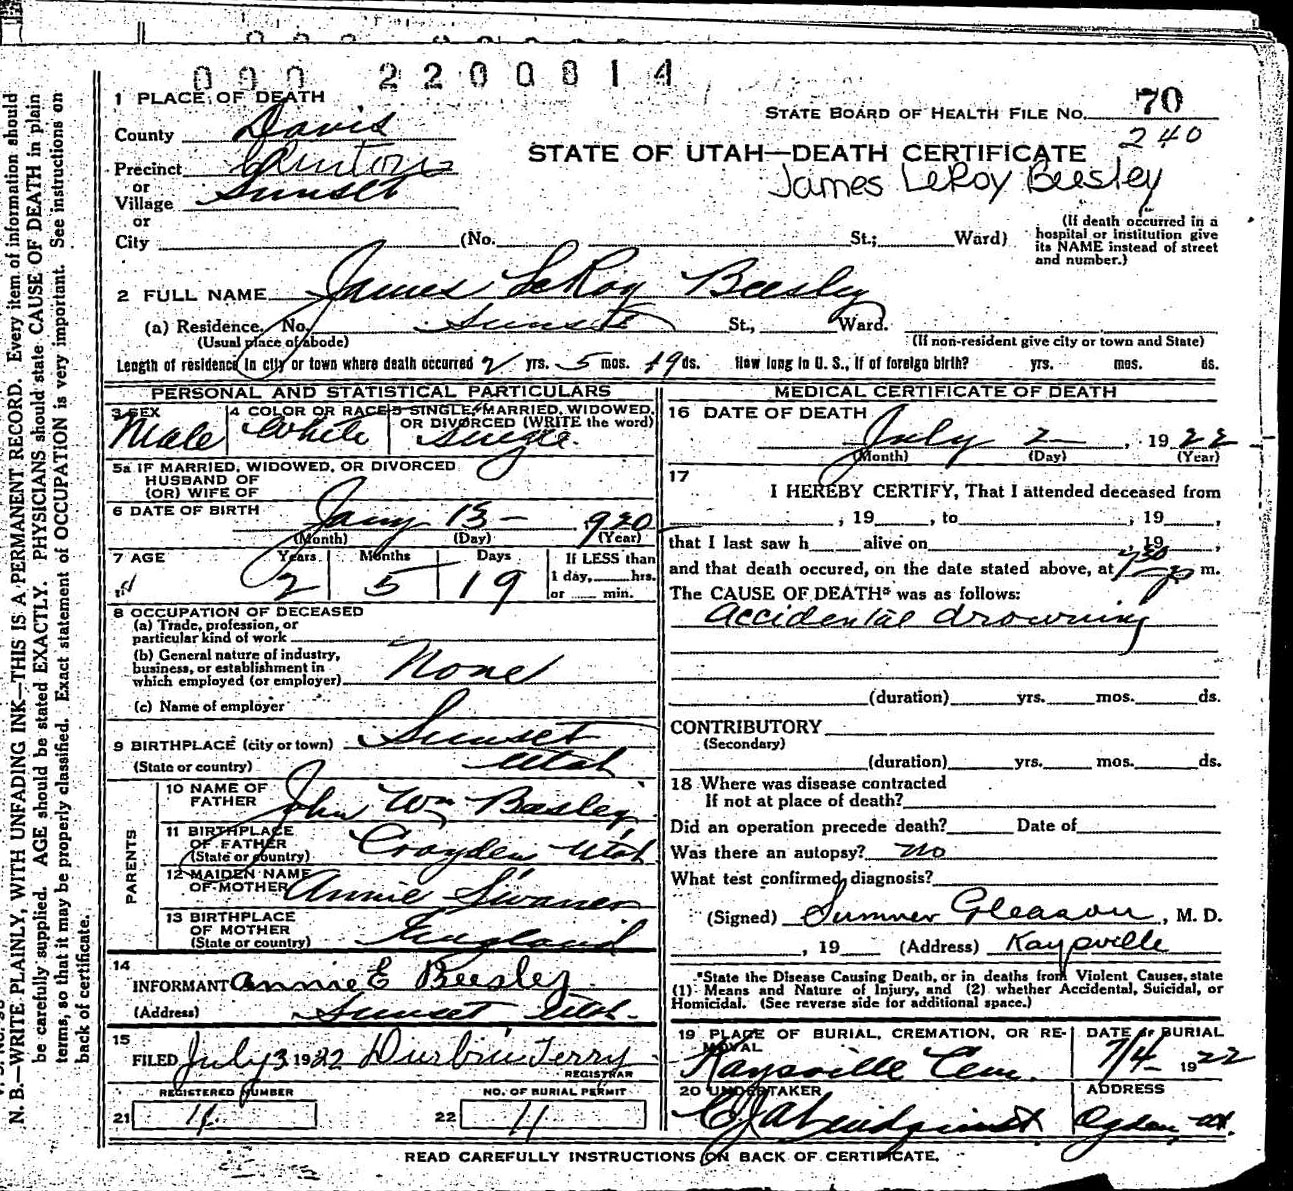 000 2200814
1 PLACE OF DEATH
STATE BOARD OF HEALTH FILE NO. 70
240
County Davis
STATE OF UTAH—DEATH CERTIFICATE
James LeRoy Beesley
Precinct Clinton
or
Village Sunset
or
City (No. St.; Ward)
(If death occurred in a
hospital or institution give
its NAME instead of street
and number.)
2 FULL NAME James LeRoy Beesley
(a) Residence. No. Sunset St., Ward.
(Usual place of abode) (If non-resident give city or town and State)
Length of residence in city or town where death occurred 2 yrs. 5 mos. 19 ds. How long in U. S., if of foreign birth? yrs. mos. ds.
PERSONAL AND STATISTICAL PARTICULARS
3 SEX
Male
4 COLOR OR RACE
White
5 SINGLE, MARRIED, WIDOWED,
OR DIVORCED (WRITE the word)
Single.
5a IF MARRIED, WIDOWED, OR DIVORCED
HUSBAND OF
(OR) WIFE OF
6 DATE OF BIRTH
Jany 13 - 920
(Month) (Day) (Year)
7 AGE Years Months Days If LESS than
2 5 19 1 day, hrs.
or min.
8 OCCUPATION OF DECEASED
(a) Trade, profession, or
particular kind of work
(b) General nature of industry,
business, or establishment in
which employed (or employer) None
(c) Name of employer
9 BIRTHPLACE (city or town) Sunset
(State or country) Utah
PARENTS
10 NAME OF
FATHER John Wm Beesley
11 BIRTHPLACE
OF FATHER
(State or country) Croyden Utah
12 MAIDEN NAME
OF MOTHER Annie Swaner
13 BIRTHPLACE
OF MOTHER
(State or country) England
14
INFORMANT Annie E Beesley
(Address) Sunset Utah.
15
FILED July 3 1922 Durbin Terry
REGISTRAR
REGISTERED NUMBER NO. OF BURIAL PERMIT
21 11 22 11
MEDICAL CERTIFICATE OF DEATH
16 DATE OF DEATH
July 2 , 1922
(Month) (Day) (Year)
17
I HEREBY CERTIFY, That I attended deceased from
, 19 , to , 19 ,
that I last saw h alive on , 19 ,
and that death occured, on the date stated above, at p m.
The CAUSE OF DEATH* was as follows:
Accidental drowning
(duration) yrs. mos. ds.
CONTRIBUTORY
(Secondary)
(duration) yrs. mos. ds.
18 Where was disease contracted
If not at place of death?
Did an operation precede death? Date of
Was there an autopsy? no
What test confirmed diagnosis?
(Signed) Sumner Gleason, M. D.
, 19 (Address) Kaysville
*State the Disease Causing Death, or in deaths from Violent Causes, state
(1) Means and Nature of Injury, and (2) whether Accidental, Suicidal, or
Homicidal. (See reverse side for additional space.)
19 PLACE OF BURIAL, CREMATION, OR RE-
MOVAL
Kaysville Cem.
DATE of BURIAL
7/4 1922
20 UNDERTAKER
ADDRESS
Ogden, Ut.
READ CAREFULLY INSTRUCTIONS ON BACK OF CERTIFICATE.
N. B.—WRITE PLAINLY, WITH UNFADING INK—THIS IS A PERMANENT RECORD. Every item of information should
be carefully supplied. AGE should be stated EXACTLY. PHYSICIANS should state CAUSE OF DEATH in plain
terms, so that it may be properly classified. Exact statement of OCCUPATION is very important. See instructions on
back of certificate.